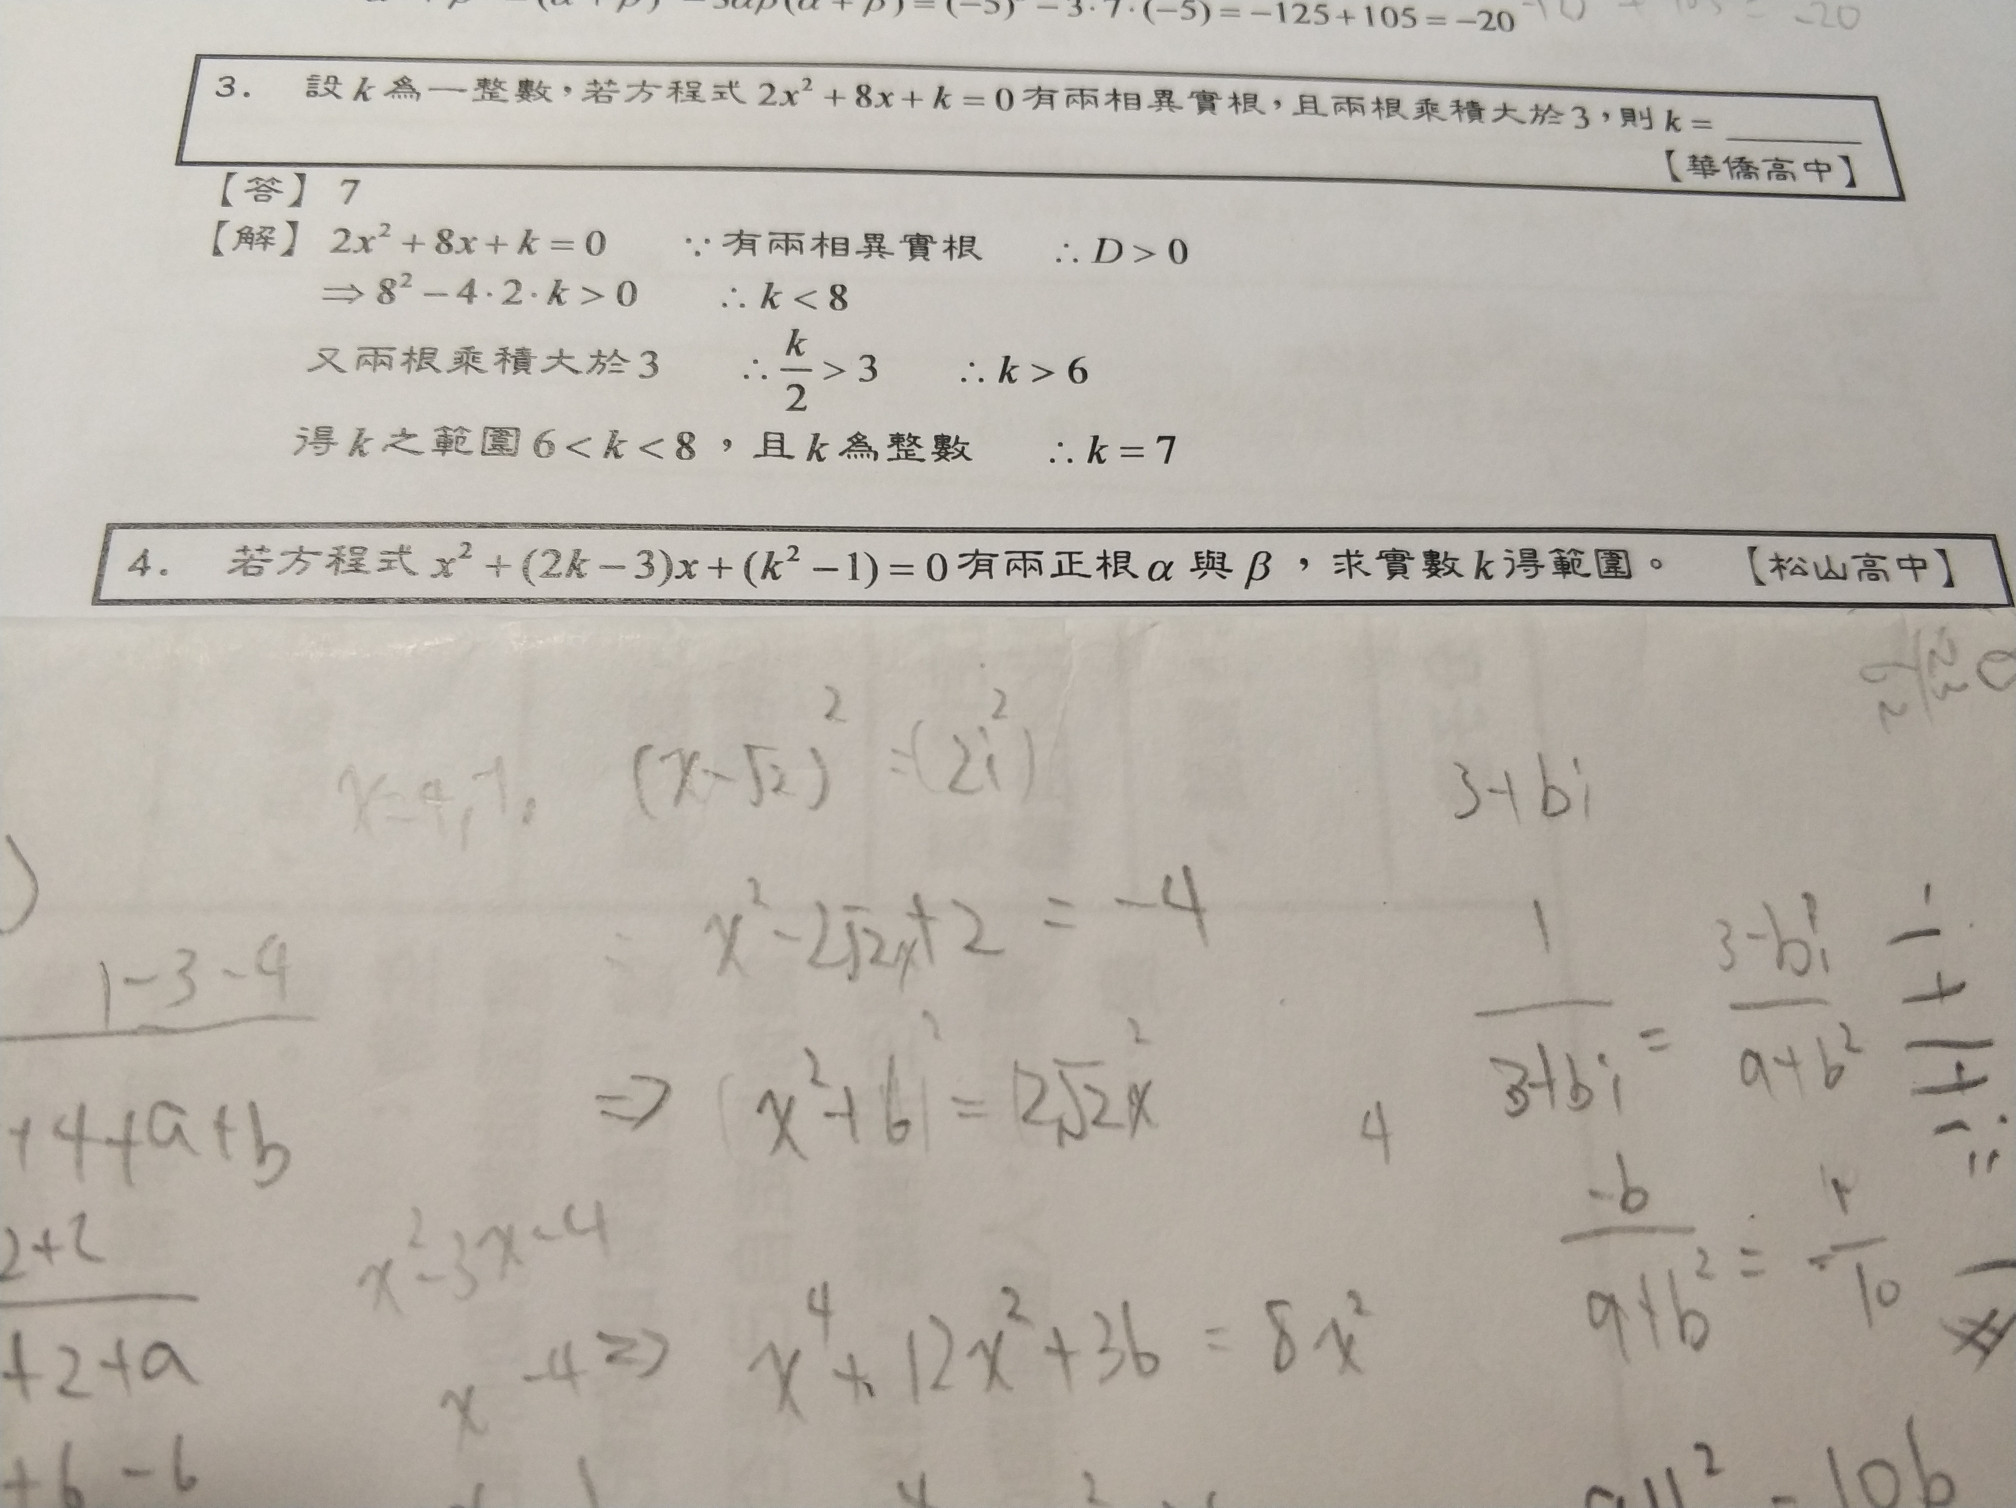 = (−5)³ − 3·7·(−5) = −125 + 105 = −20
3. 設 k 為一整數，若方程式 2x² + 8x + k = 0 有兩相異實根，且兩根乘積大於 3，則 k = ______
【華僑高中】
【答】 7
【解】 2x² + 8x + k = 0 ∵有兩相異實根 ∴ D > 0
⇒ 8² − 4·2·k > 0 ∴ k < 8
又兩根乘積大於 3 ∴ k/2 > 3 ∴ k > 6
得 k 之範圍 6 < k < 8，且 k 為整數 ∴ k = 7
4. 若方程式 x² + (2k − 3)x + (k² − 1) = 0 有兩正根 α 與 β，求實數 k 得範圍。 【松山高中】
(x-√2)² = (2i)²
3+bi
x² - 2√2x + 2 = -4
1-3-4
1/(3+bi) = (3-bi)/(a+b²)
⇒ (x²+6)² = (2√2x)²
4
+4+a+b
-b/(a+b²) =
2+2
x²-3x-4
+2+a
x -4
⇒ x⁴ + 12x² + 36 = 8x²
+b -b